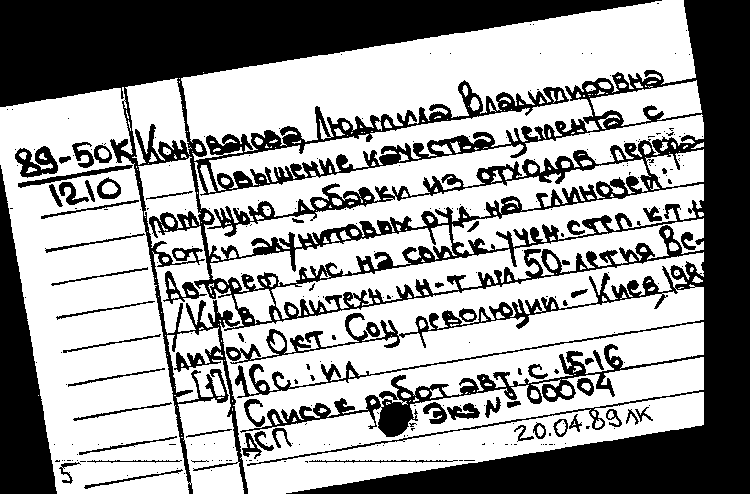 89-50К
1210
Коновалова, Людмила Владимировна
Повышение качества цемента с
помощью добавки из отходов перера-
ботки алунитовых руд на глинозем:
Автореф. дис. на соиск. учен. степ. к.т.н
/Киев. политехн. ин-т им. 50-летия Ве-
ликой Окт. Соц. революции. – Киев, 198
–[1] 16с. : ил.
Список работ авт.: с. 15-16
ДСП Экз № 00004
20.04.89 ЛК
5